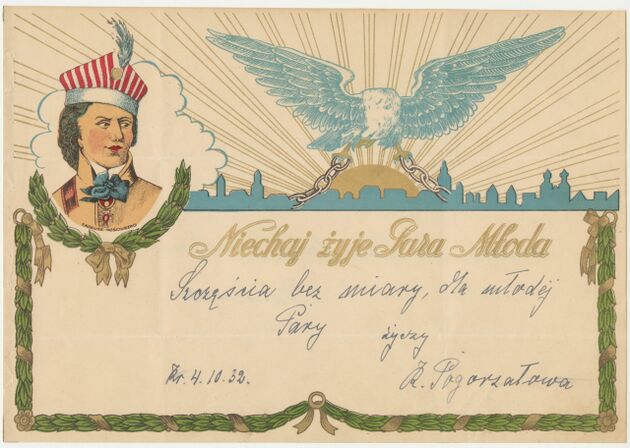 TADEUSZ KOŚCIUSZKO
Niechaj żyje Para Młoda
Szczęścia bez miary, dla młodej
Pary życzy
Kr. 4.10.32. Z. Pogorzałowa